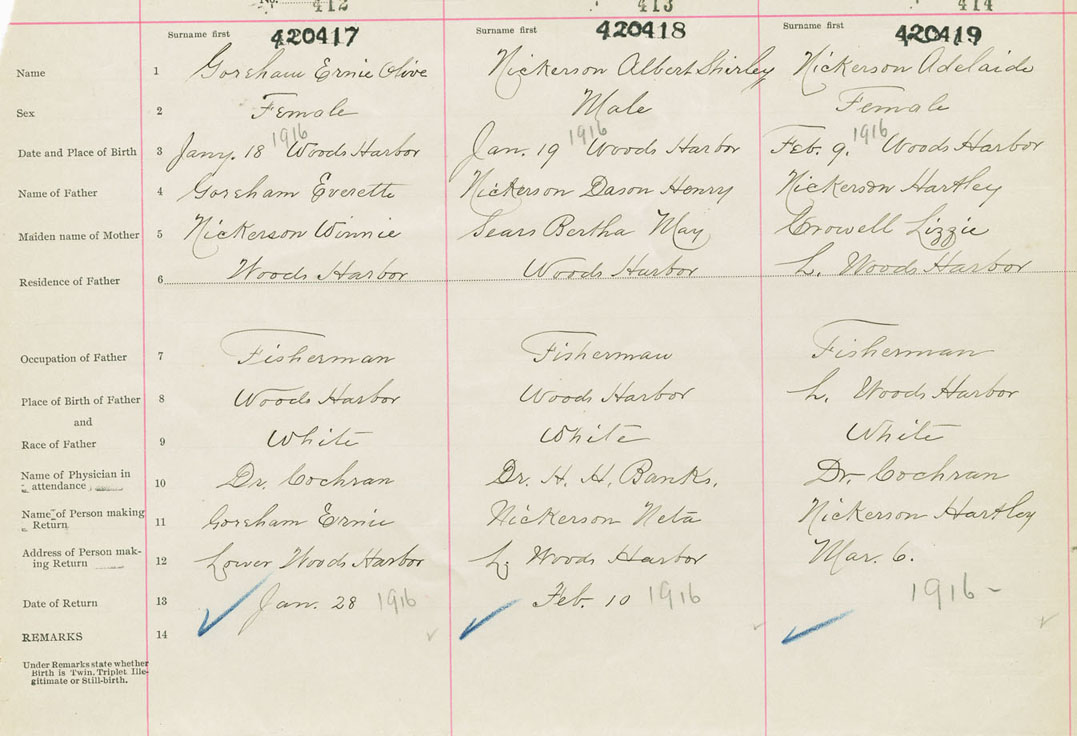 No. 412 413 414
Surname first 420417 Surname first 420418 Surname first 420419
Name 1 Goreham Ernie Olive Nickerson Albert Shirley Nickerson Adelaide
Sex 2 Female Male Female
1916 1916 1916
Date and Place of Birth 3 Jany. 18 Woods Harbor Jan. 19 Woods Harbor Feb. 9. Woods Harbor
Name of Father 4 Goreham Everette Nickerson Dason Henry Nickerson Hartley
Maiden name of Mother 5 Nickerson Winnie Sears Bertha May Crowell Lizzie
Residence of Father 6 Woods Harbor Woods Harbor L. Woods Harbor
Occupation of Father 7 Fisherman Fisherman Fisherman
Place of Birth of Father 8 Woods Harbor Woods Harbor L. Woods Harbor
and
Race of Father 9 White White White
Name of Physician in
attendance 10 Dr. Cochran Dr. H. H. Banks. Dr. Cochran
Name of Person making
Return 11 Goreham Ernie Nickerson Neta Nickerson Hartley
Address of Person mak-
ing Return 12 Lower Woods Harbor L. Woods Harbor Mar. 6.
Date of Return 13 Jan. 28 1916 Feb. 10 1916 1916 -
REMARKS 14
Under Remarks state whether
Birth is Twin, Triplet Ille-
gitimate or Still-birth.